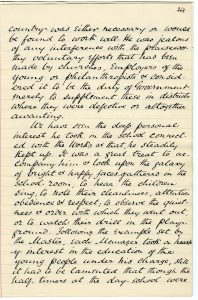 29
country was either necessary or would
be found to work well. He was jealous
of any interference with the praiseworthy
voluntary efforts that has been
made by churches, Employers of the
young or philanthropists & consid-
ered it to be the duty of Government
merely to supplement these in districts
where they were defective or altogether
awanting.
We have seen the deep personal
interest he took in the school connect-
ed with the Works & that he steadily
kept up. It was a great treat to ac-
company him & look upon the galaxy
of bright & happy faces gathered in the
school room, to hear the children
sing, to note their cleanliness, attention
obedience & respect, to observe the quiet-
ness & order with which they went out,
or to watch their drill in the play-
ground. Following the example set by
the Master, each Manager took a hear-
ty interest in the education of the
young people under his charge, still
it had to be lamented that though the
half-timers at the day school were